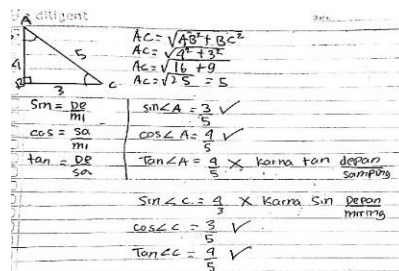 diligent
A
AC = √AB² + BC²
AC = √4² + 3²
AC = √16 + 9
AC = √25 = 5
4 5
B 3 C
Sin = De/mi
cos = sa/mi
tan = De/sa
sin∠A = 3/5 ✓
cos∠A = 4/5 ✓
Tan∠A = 4/5 X karna tan depan/samping
Sin∠C = 4/3 X karna Sin Depan/miring
cos∠C = 3/5 ✓
Tan∠C = 4/5 ✓